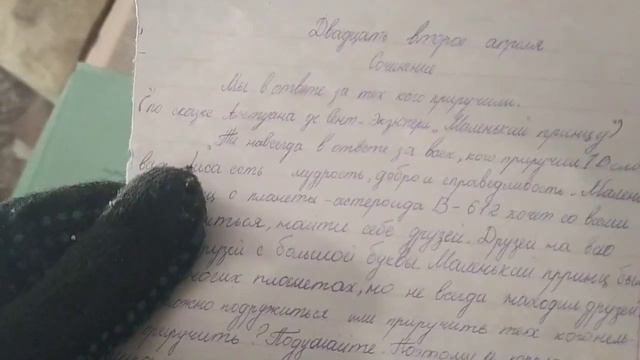 Двадцать второе апреля
Сочинение
Мы в ответе за тех кого приручили.
(по сказке Антуана де Сент-Экзюпери „Маленький принц")
„Ты навсегда в ответе за всех, кого приручил". В сло
вах Лиса есть мудрость, добро и справедливость. Мален
ц с планеты-астероида В-612 хочет со всеми
иться, найти себе друзей. Друзей на
рузей с большой буквы. Маленький принц был
ногих планетах, но не всегда находил друзей
ожно подружиться или приручить тех кого нель-
приручить? Подумайте. Поэтому